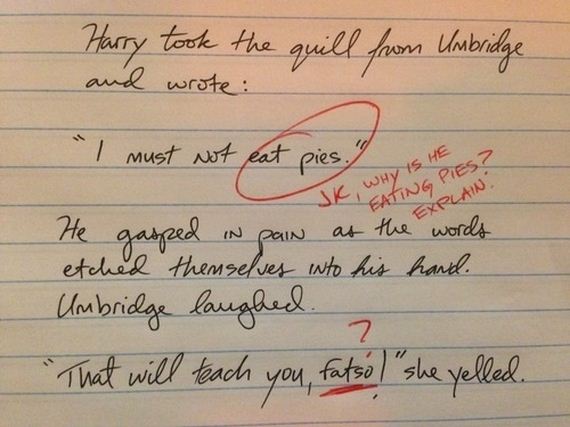 Harry took the quill from Umbridge
and wrote:
"I must not eat pies."
JK, WHY IS HE
EATING PIES?
EXPLAIN.
He gasped in pain as the words
etched themselves into his hand.
Umbridge laughed.
?
"That will teach you, fatso!" she yelled.